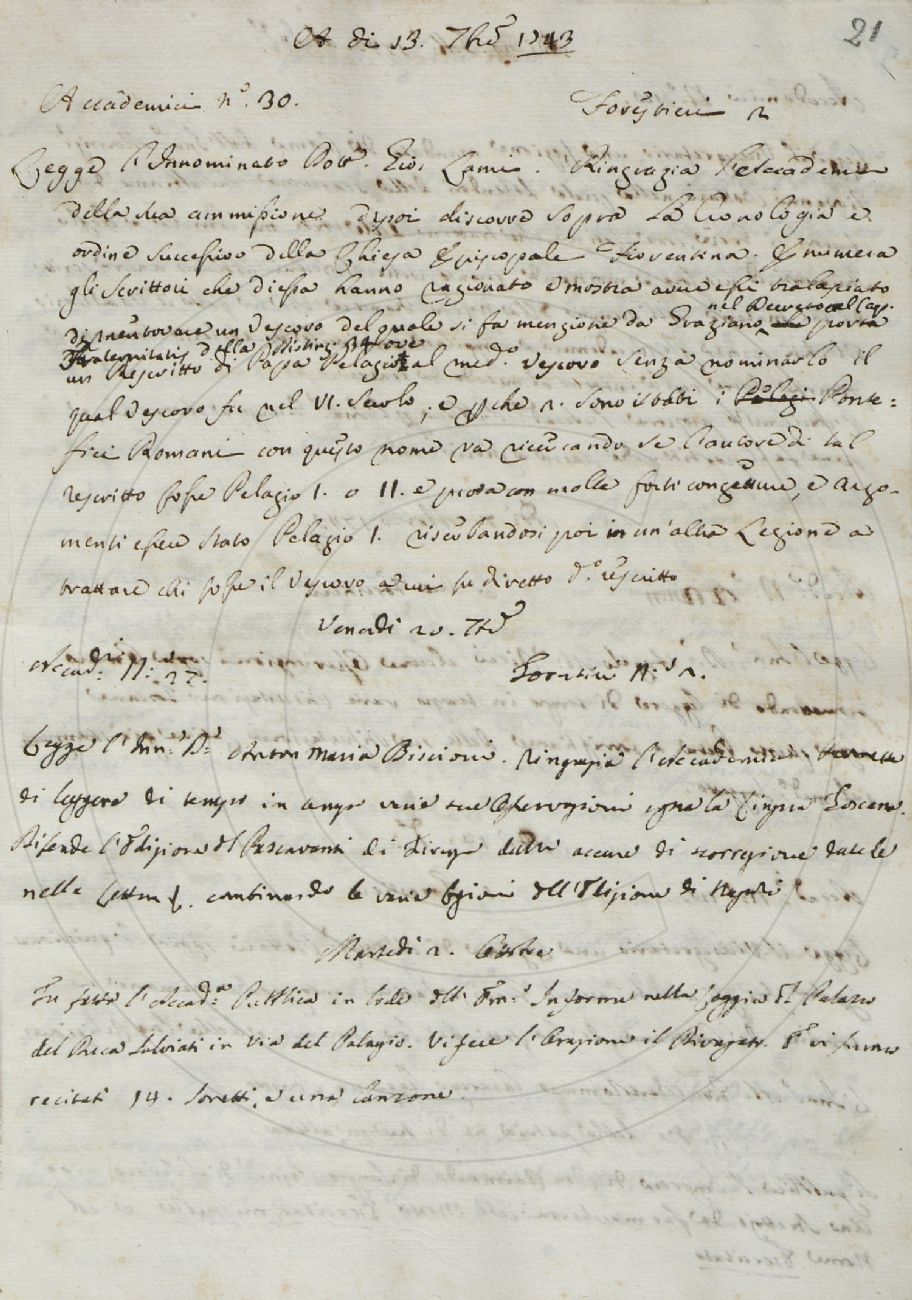 21
A di 13. 7bre 1743
Accademici n.o 30. Forestieri 2
Legge l'Innominato Dott. Gio: Lami. Ringrazia l'Accademia
della sua ammissione, e poi discorre sopra la Cronologia e
ordine successivo della Chiesa Episcopale Fiorentina. Enumera
gli Scrittori che di essa hanno ragionato e mostra aver essi tralasciato
di mentovare un Vescovo del quale si fa menzione da Graziano nel Decreto al Cap.
Fraternitatis della Distinz. 34 ove porta
un Rescritto di Papa Pelagio al med.o Vescovo senza nominarlo il
qual Vescovo fu nel VI. Secolo, e perché 2. sono stati i Ponte=
fici Romani con questo nome va ricercando se l'autore di tal
rescritto fosse Pelagio I. o II. e prova con molte forti congetture, e Argo-
menti essere stato Pelagio I. riserbandosi poi in un'altra Lezione a
trattare chi fosse il Vescovo a cui fu diretto d.o rescritto
Venerdi 20. 7bre
Accad.i N.o 27. Forestieri N.o 2.
Legge l'Inn.o D.r Anton Maria Biscioni. Ringrazia l'Accademia
di leggere di tempo in tempo varie sue Osservazioni sopra la lingua Toscana.
Difende l'Edizione del Passavanti di Firenze dalle accuse di scorrezione datele
nella combinando le varie lezioni dell'Edizione di Napoli
Martedi 2. Ottobre
Fu fatta l'Accad.a Pubblica in lode dell' nella Loggia del Palazzo
del Duca Salviati in Via del Palagio. Vi fece l'Orazione il vi furono
recitati 14. Sonetti, e una Canzone.